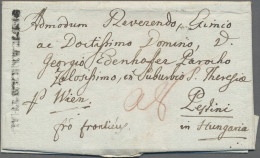 Admodum Reverendo, Eximio
ac Doctissimo Domino, D
Georgio Edenhofer Parocho
Zelosissimo, ex Suburbio S. Theresiæ
pr Wien. Pestini
pro frontier in Hungaria